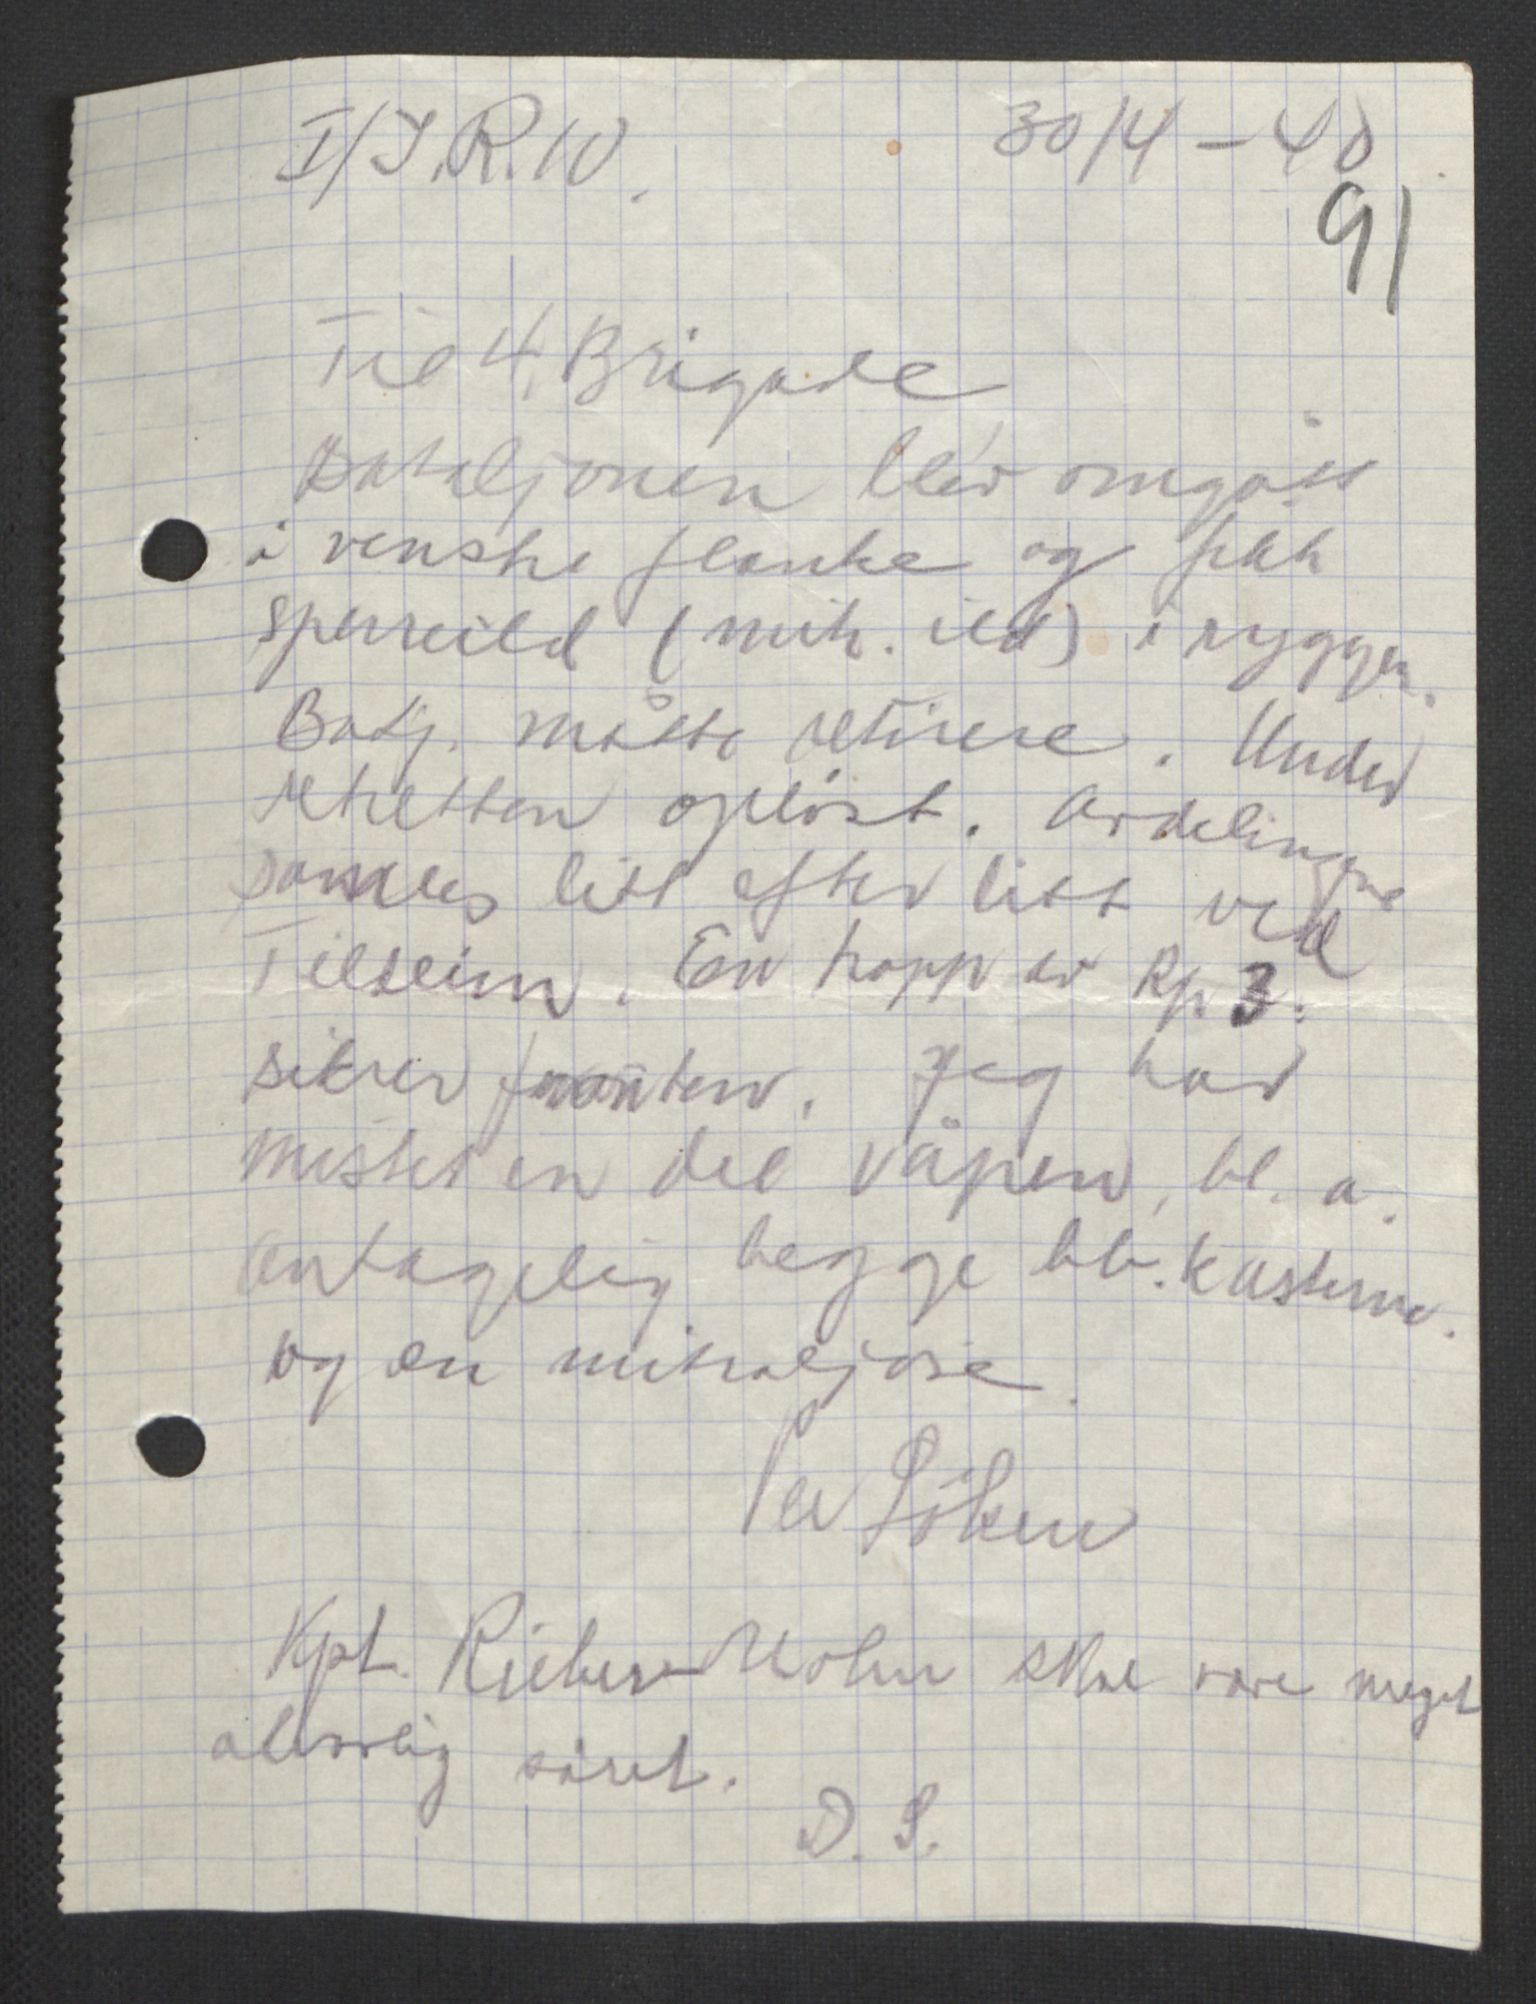 I/I.R.10.
30/4-40
91
Til 4. Brigade
Bataljonen blev omgått
i venstre flanke og fikk
sperreild (mitr. ild) i ryggen.
Batj. måtte retirere. Under
retretten opløst. Avdelingene
samles litt efter litt ved
Tilseim. En tropp av Kp 3.
sikrer fronten. Jeg har
mistet en del våpen, bl. a.
antagelig begge bb.kasterne.
og en mitraljøse.
Per Löken
Kpt. Rieber-Mohn skal være meget
alvorlig såret.
D. S.